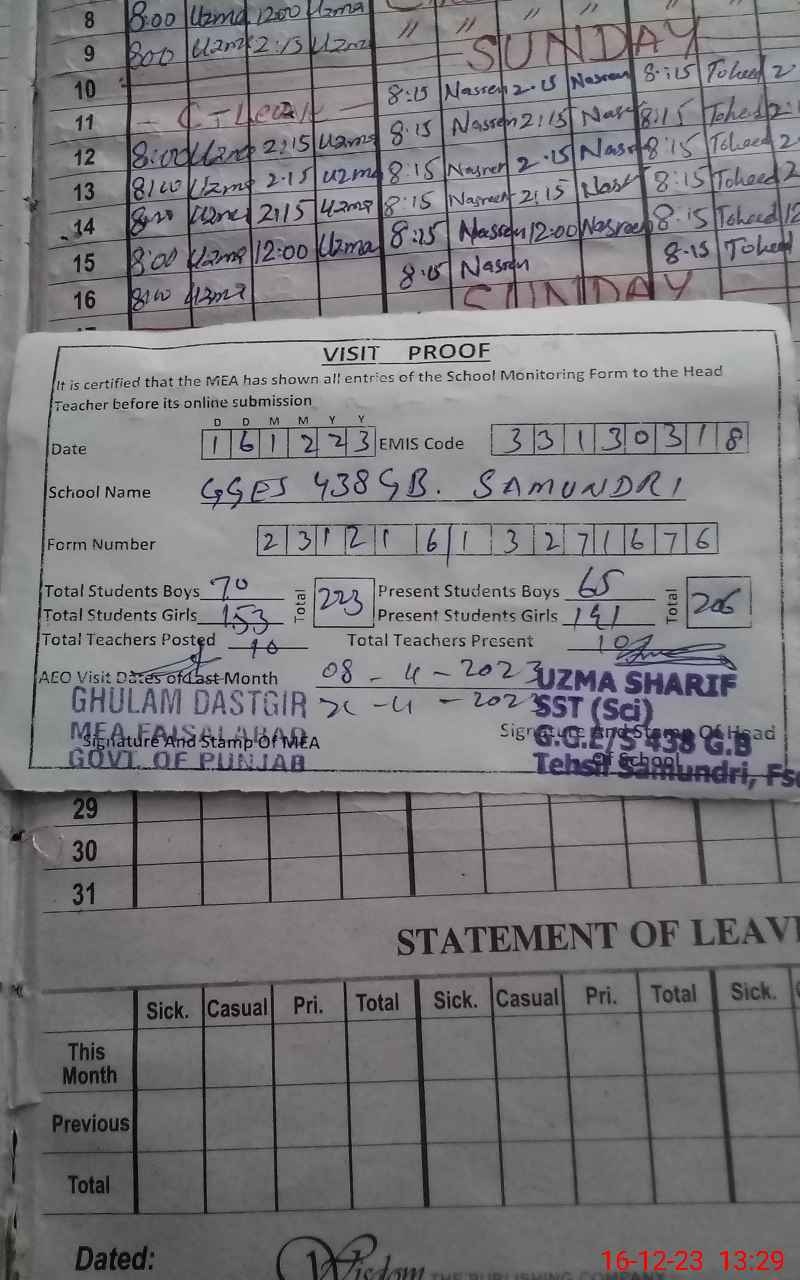 8 8:00 Uzma 12:00 Uzma
9 8:00 Uzma 2:15 Uzma " " " "
SUNDAY
10 8:15 Nasreen 2:15 Nasreen 8:15 Toheed
11 C-Leave 8:15 Nasreen 2:15 8:15 Toheed
12 8:00 Uzma 2:15 Uzma 8:15 Nasreen 2:15 8:15 Toheed
13 8:00 Uzma 2:15 Uzma 8:15 Nasreen 2:15 8:15 Toheed
14 8:00 Uzma 2:15 Uzma 8:15 Nasreen 12:00 Nasreen 8:15 Toheed
15 8:00 Uzma 12:00 Uzma 8:15 Nasreen 8:15 Toheed
16 8:00 Uzma SUNDAY
VISIT PROOF
It is certified that the MEA has shown all entries of the School Monitoring Form to the Head
Teacher before its online submission
D D M M Y Y
Date 1 6 1 2 2 3 EMIS Code 3 3 1 3 0 3 1 8
School Name GGES 438 GB. SAMUNDRI
Form Number 2 3 1 2 1 6 1 3 2 7 1 6 7 6
Total Students Boys 70 Total 223 Present Students Boys 65 Total 206
Total Students Girls 153 Present Students Girls 141
Total Teachers Posted 10 Total Teachers Present 10
AEO Visit Dates of Last Month 08 - 4 - 2023
GHULAM DASTGIR - 4 - 2023 UZMA SHARIF
MEA FAISALABAD SST (Sci)
Signature And Stamp Of MEA Signature And Stamp Of Head
GOVT. OF PUNJAB G.G.E/S 438 G.B
Of School
Tehsil Samundri, Fs
29
30
31
STATEMENT OF LEAV
Sick. Casual Pri. Total Sick. Casual Pri. Total Sick.
This
Month
Previous
Total
Dated: Wisdom THE PUBLISHING COMPANY
16-12-23 13:29